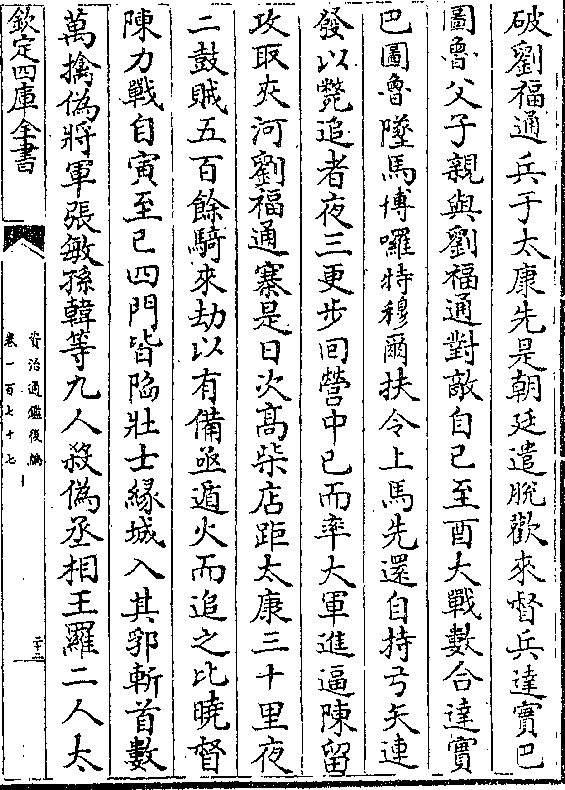 破劉福通兵于太康先是朝廷遣脫歡來督兵達實巴
圖魯父子親與劉福通對敵自巳至酉大戰數合達實
巴圖魯墜馬博囉特穆爾扶令上馬先還自持弓矢連
發以斃追者夜三更步回營中已而率大軍進逼陳留
攻取夾河劉福通寨是日次髙柴店距太康三十里夜
二鼓賊五百餘騎來劫以有備亟遁火而追之比曉督
陳力戰自寅至巳四門皆陷壯士緣城入其郛斬首數
萬擒偽將軍張敏孫韓等九人殺偽丞相王羅二人太
欽定四庫全書
資治通鑑後編
卷一百七十七
二十二